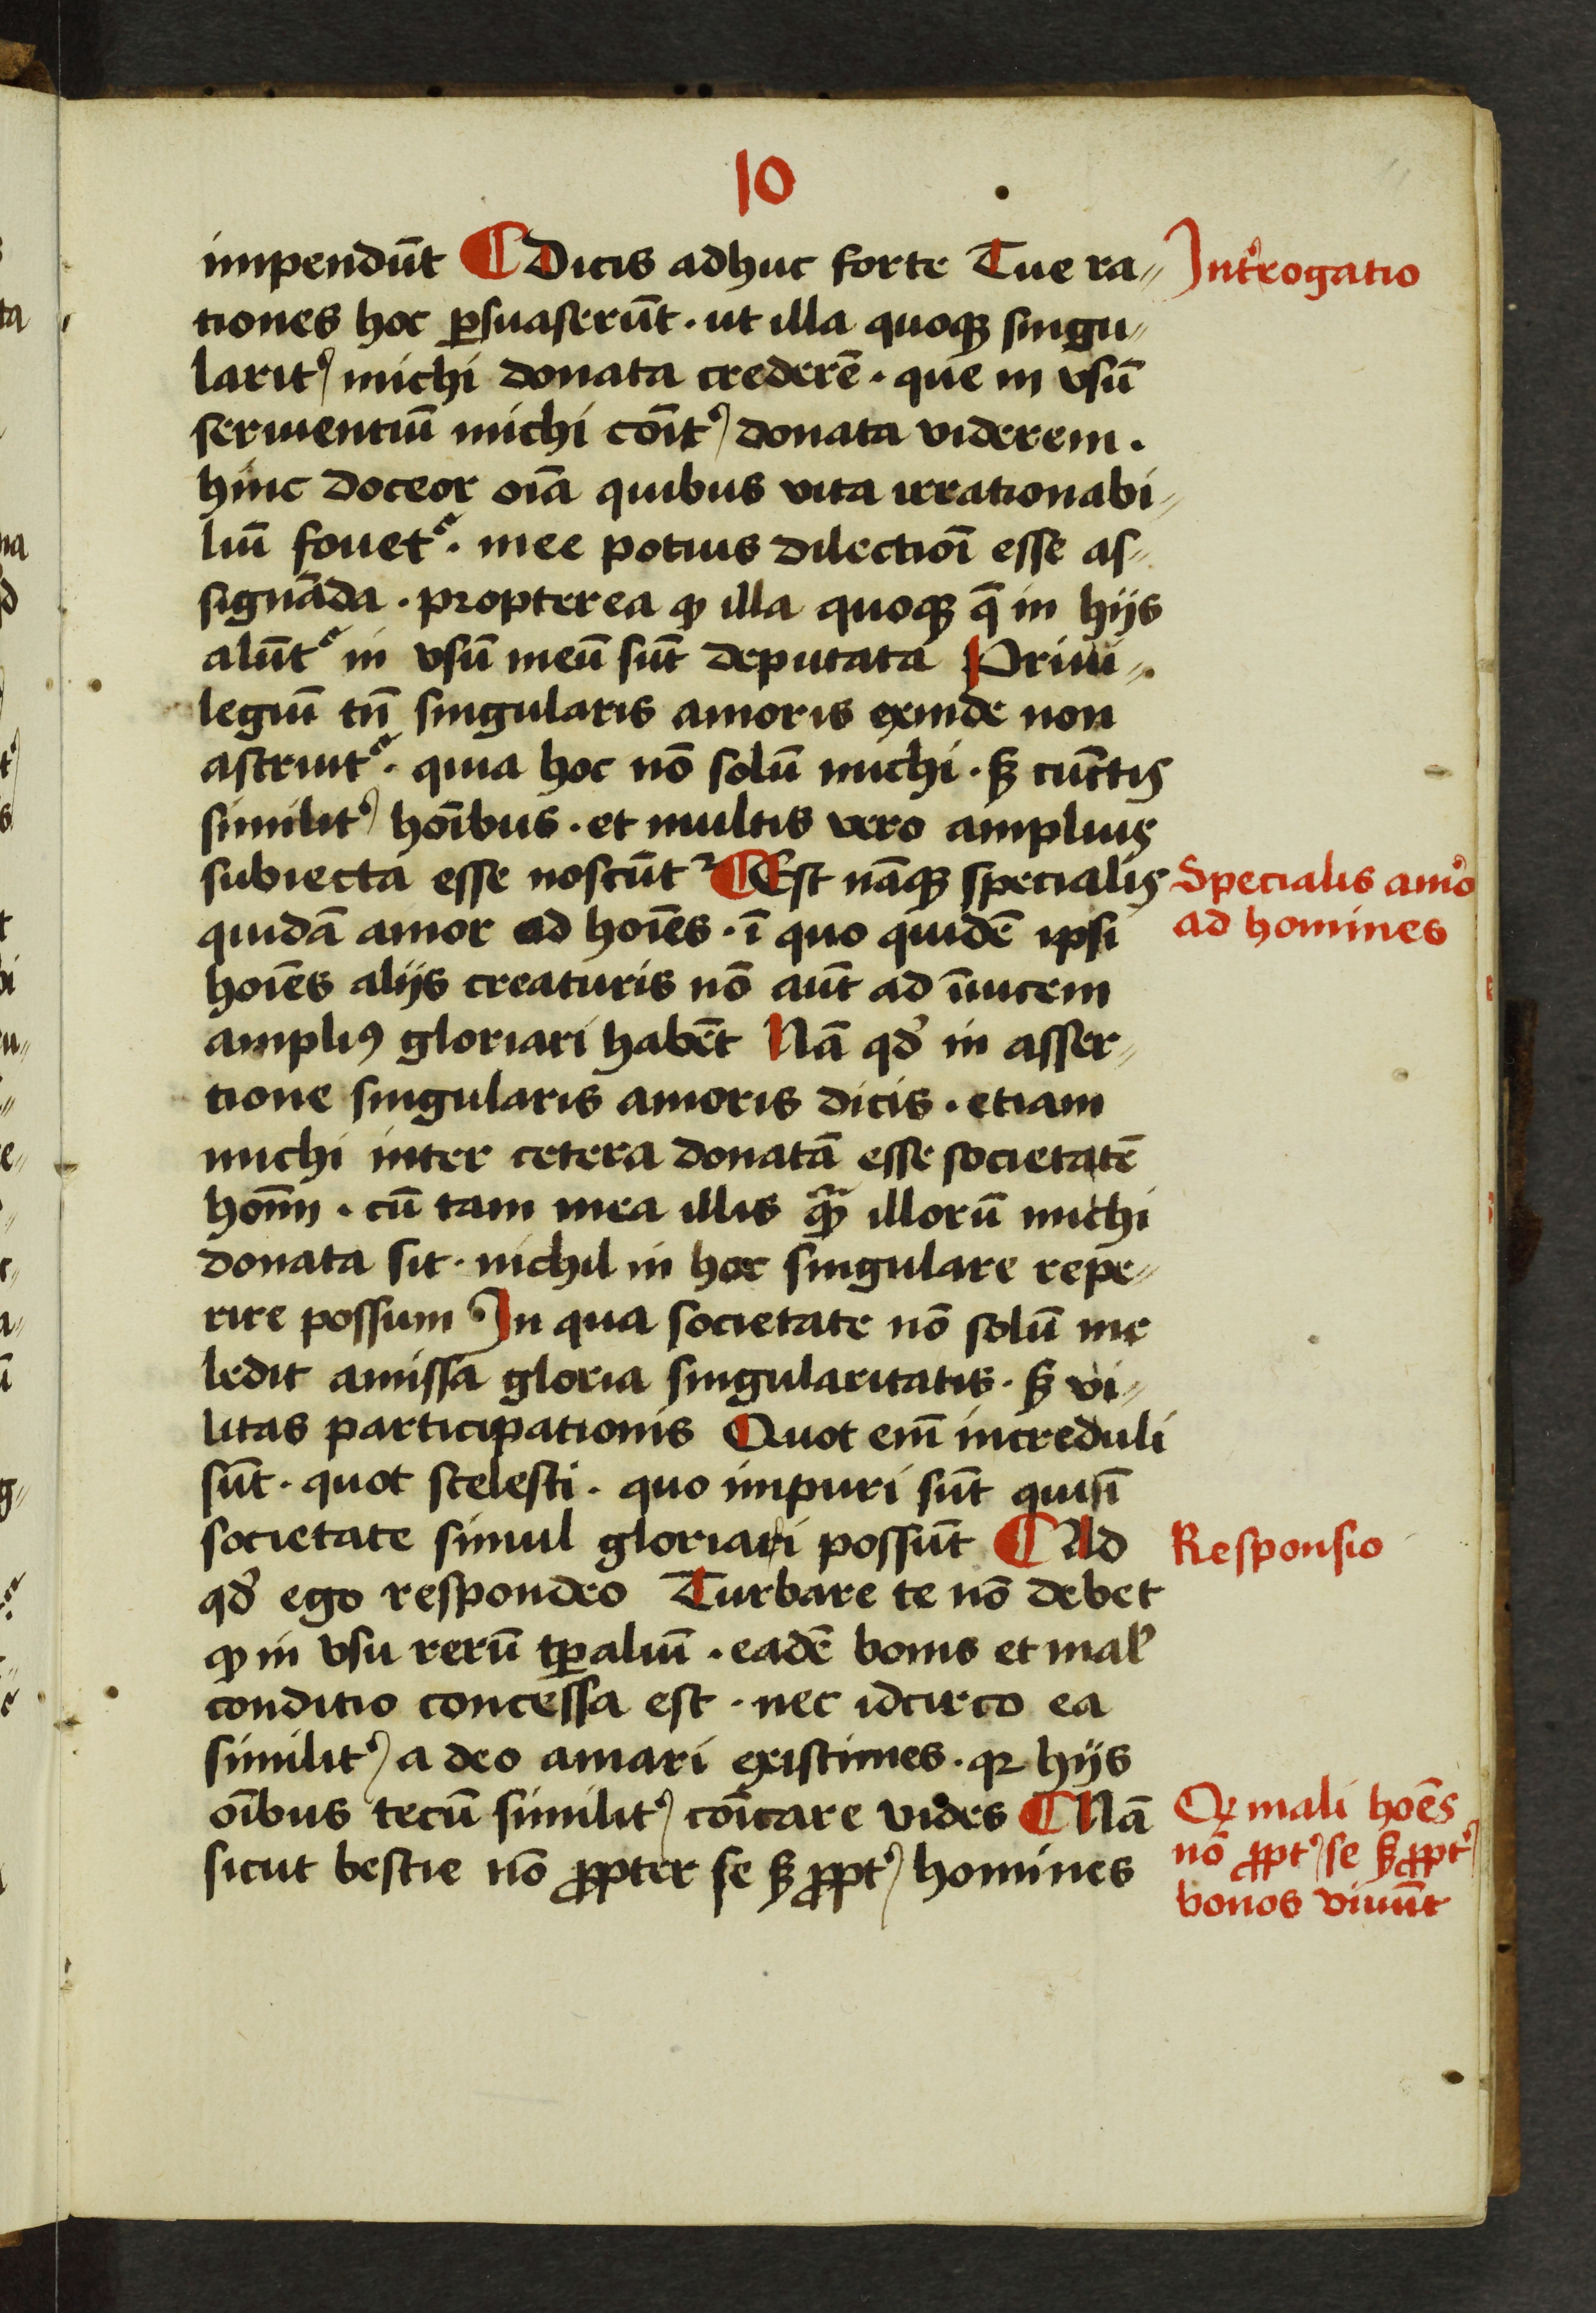 10
impendūt ¶ Dicis adhuc forte Tue ra„
tiones hoc ꝑsuaserūt · ut illa quoqꝫ singu„
larit᷒ michi donata crederē · que in vsū
seruientiū michi cōit᷒ donata viderem ·
hinc doceor oīa quibus vita irrationabi„
liū fouet᷑ · mee potius dilectiōi esse as„
signāda · propterea ꝙ illa quoqꝫ q̄ in hijs
alūt᷑ in vsū meū sūt deputata Priui„
legiū tn̄ singularis amoris exinde non
astruit᷑ · quia hoc nō solū michi · sꝫ cūctis
similit᷒ hoībus · et multis vero amplius
subiecta esse noscūt᷑ ¶ Est nāqꝫ specialis
quidā amor ad hoīes · ī quo quidē ipsi
hoīes alijs creaturis nō aūt ad īuicem
ampliꝯ gloriari habēt Nā qd̓ in asser„
tione singularis amoris dicis · etiam
michi inter cetera donatā esse societatē
hoīm · cū tam mea illis qᷓꝫ illorū michi
donata sit · nichil in hoc singulare repe„
rire possum In qua societate nō solū me
ledit amissa gloria singularitatis · sꝫ vi„
litas participationis Quot em̄ increduli
sūt · quot scelesti · quo impuri sūt qui sī
societate simul gloriari possūt ¶ Ad
qd̓ ego respondeo Turbare te nō debet
ꝙ in vsu rerū tꝑaliū · eadē bonis et mal᷒
conditio concessa est · nec idcirco ea
similit᷒ a deo amari existimes · qꝛ hijs
oībus tecū similit᷒ cōīcare vides ¶ Nā
sicut bestie nō ꝓpter se sꝫ ꝓpt᷒ homines
Int᷒rogatio
Specialis amo᷒
ad homines
Responsio
Qꝫ mali hoēs
nō ꝓpt᷒ se sꝫ ꝓpt᷒
bonos viuūt